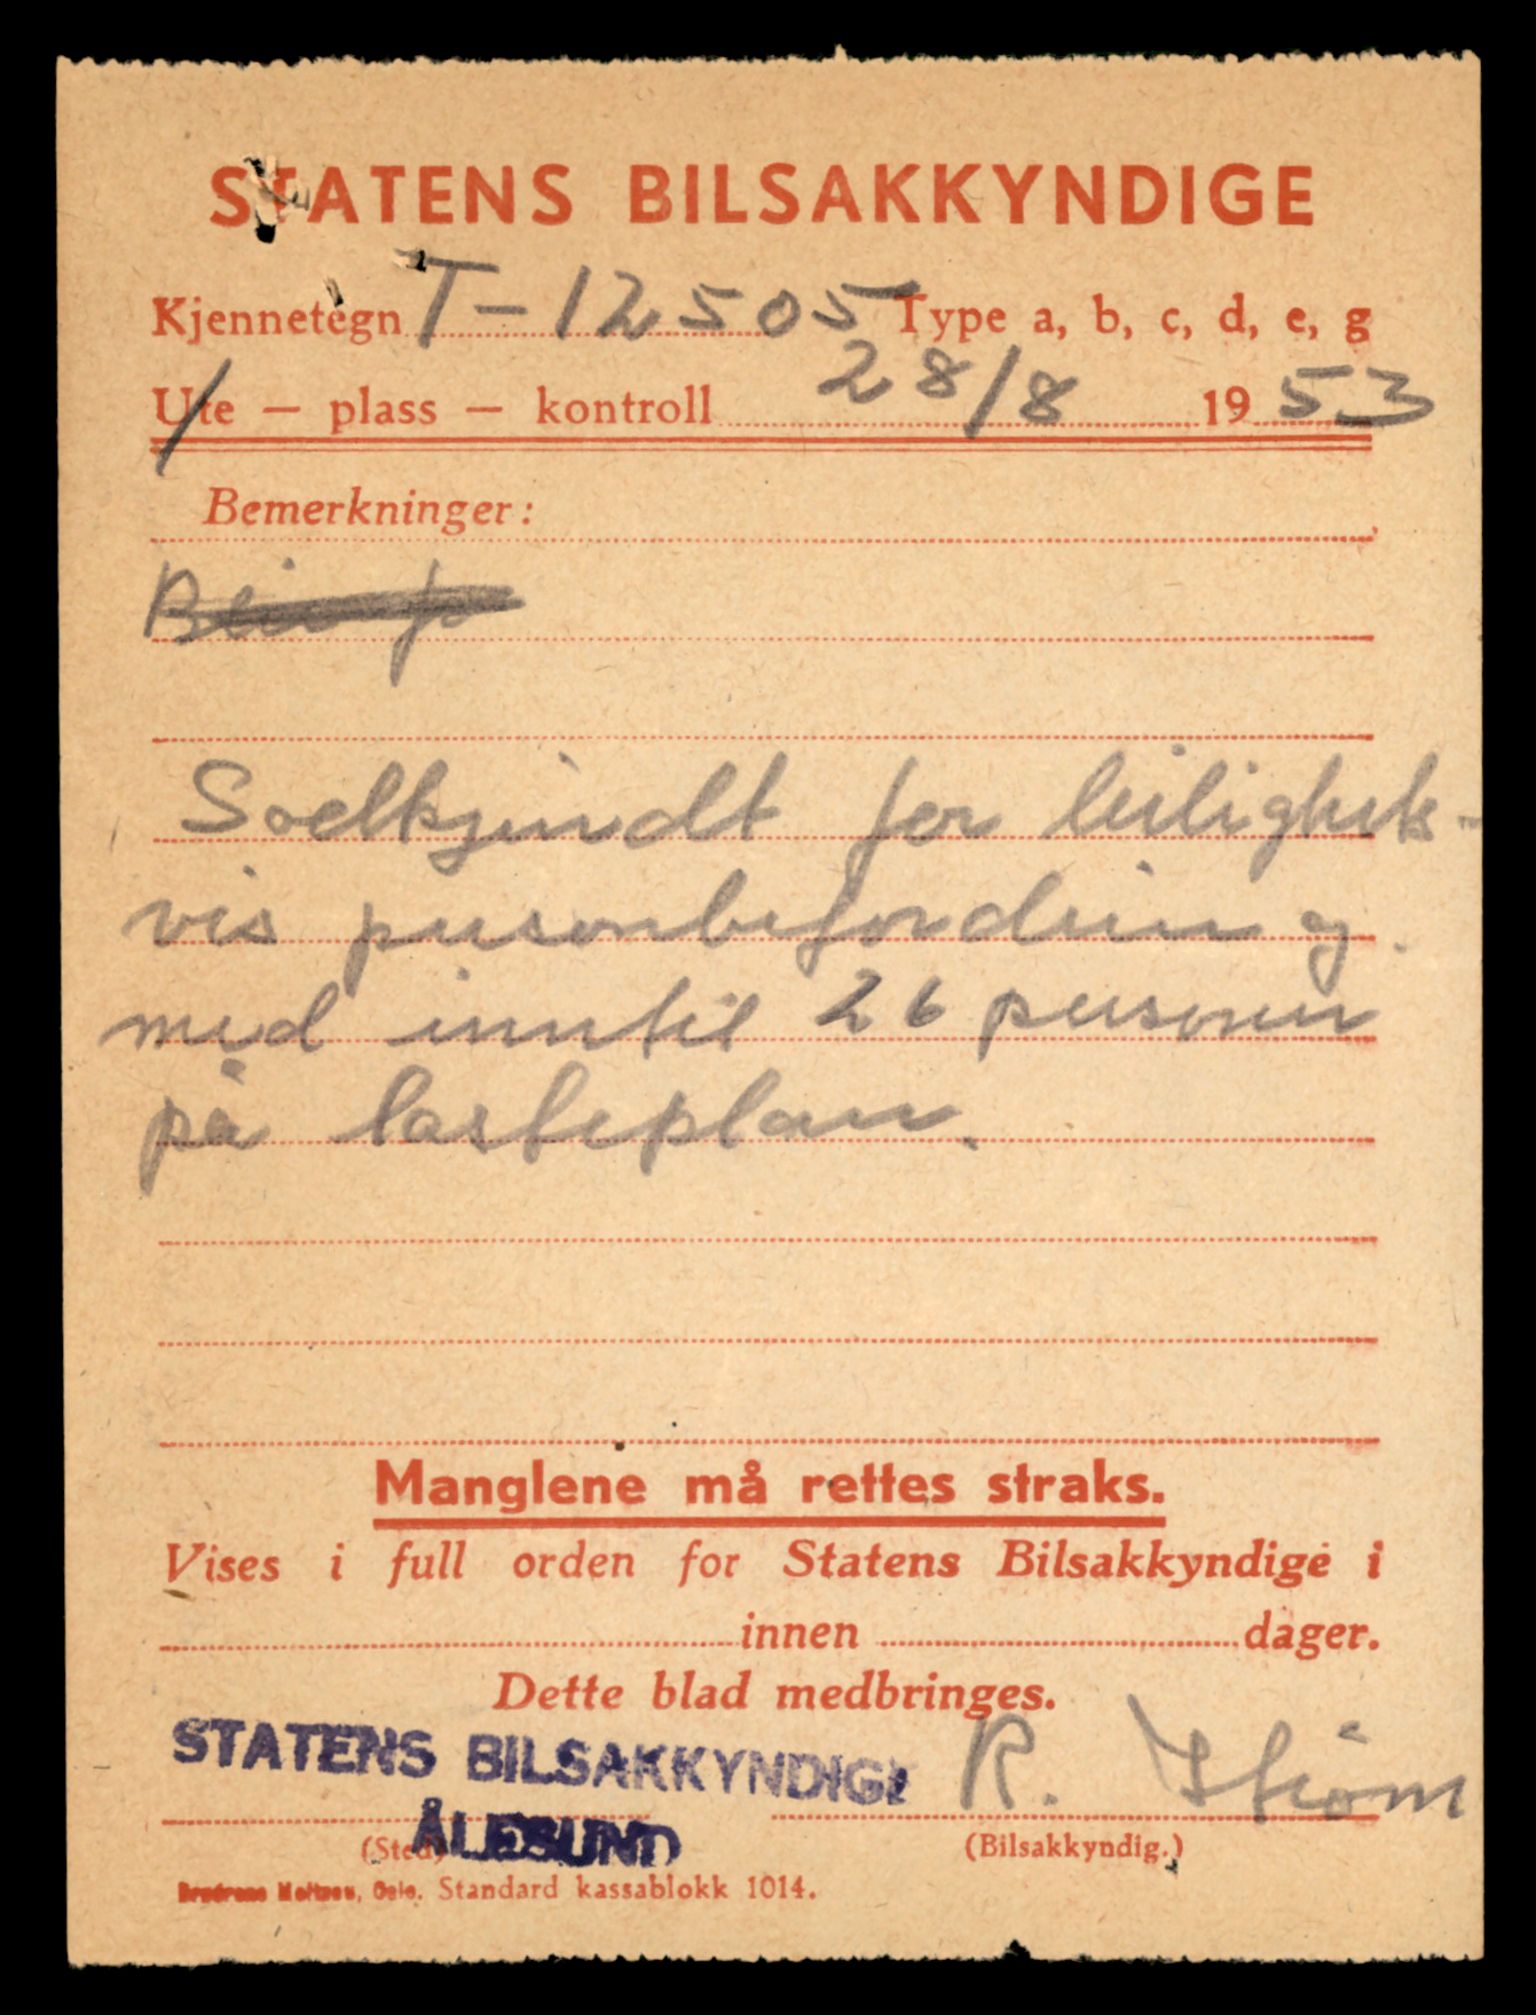 STATENS BILSAKKYNDIGE
Kjennetegn T-12505 Type a, b, c, d, e, g
Ute — plass — kontroll 28/8 1953
Bemerkninger:
for leilighets-
vis personbefordrin og
med inntil 26 personer
på lasteplan.
Manglene må rettes straks.
Vises i full orden for Statens Bilsakkyndige i
innen dager.
Dette blad medbringes.
STATENS BILSAKKYNDIGE R. Strøm
ÅLESUND
(Sted) (Bilsakkyndig.)
Oslo. Standard kassablokk 1014.